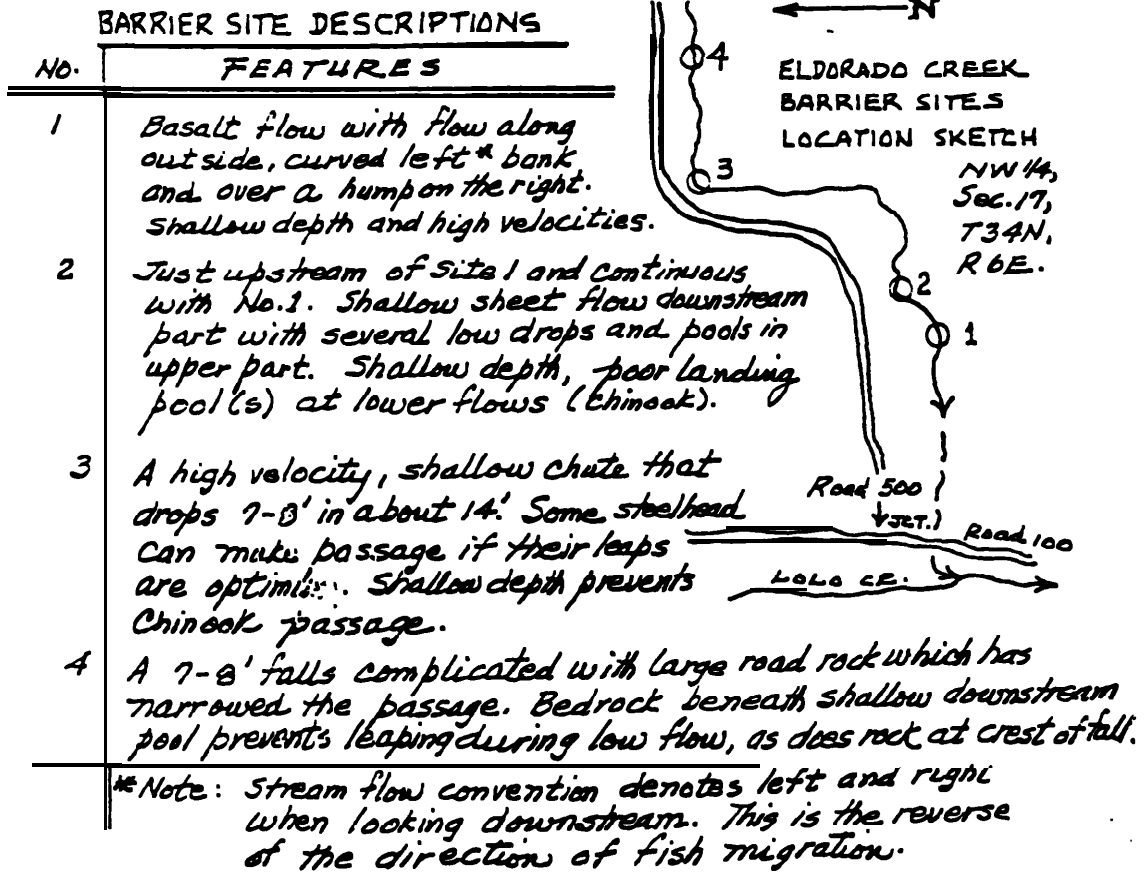 BARRIER SITE DESCRIPTIONS
No. FEATURES
1 Basalt flow with flow along
outside, curved left* bank
and over a hump on the right.
Shallow depth and high velocities.
2 Just upstream of Site 1 and continuous
with No.1. Shallow sheet flow downstream
part with several low drops and pools in
upper part. Shallow depth, poor landing
pool(s) at lower flows (Chinook).
3 A high velocity, shallow chute that
drops 7-8' in about 14'. Some steelhead
can make passage if their leaps
are Shallow depth prevents
Chinook passage.
4 A 7-8' falls complicated with large road rock which has
narrowed the passage. Bedrock beneath shallow downstream
pool prevents leaping during low flow, as does rock at crest of fall.
*Note: Stream flow convention denotes left and right
when looking downstream. This is the reverse
of the direction of fish migration.
N
ELDORADO CREEK
BARRIER SITES
LOCATION SKETCH
NW 1/4,
Sec. 17,
T34N,
R6E.
4
3
2
1
Road 500
JCT.
Road 100
LOLO CR.